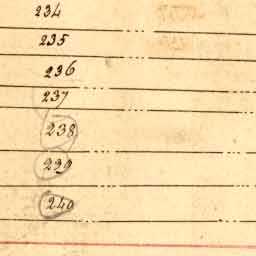 234
235
236
237
238
239
240